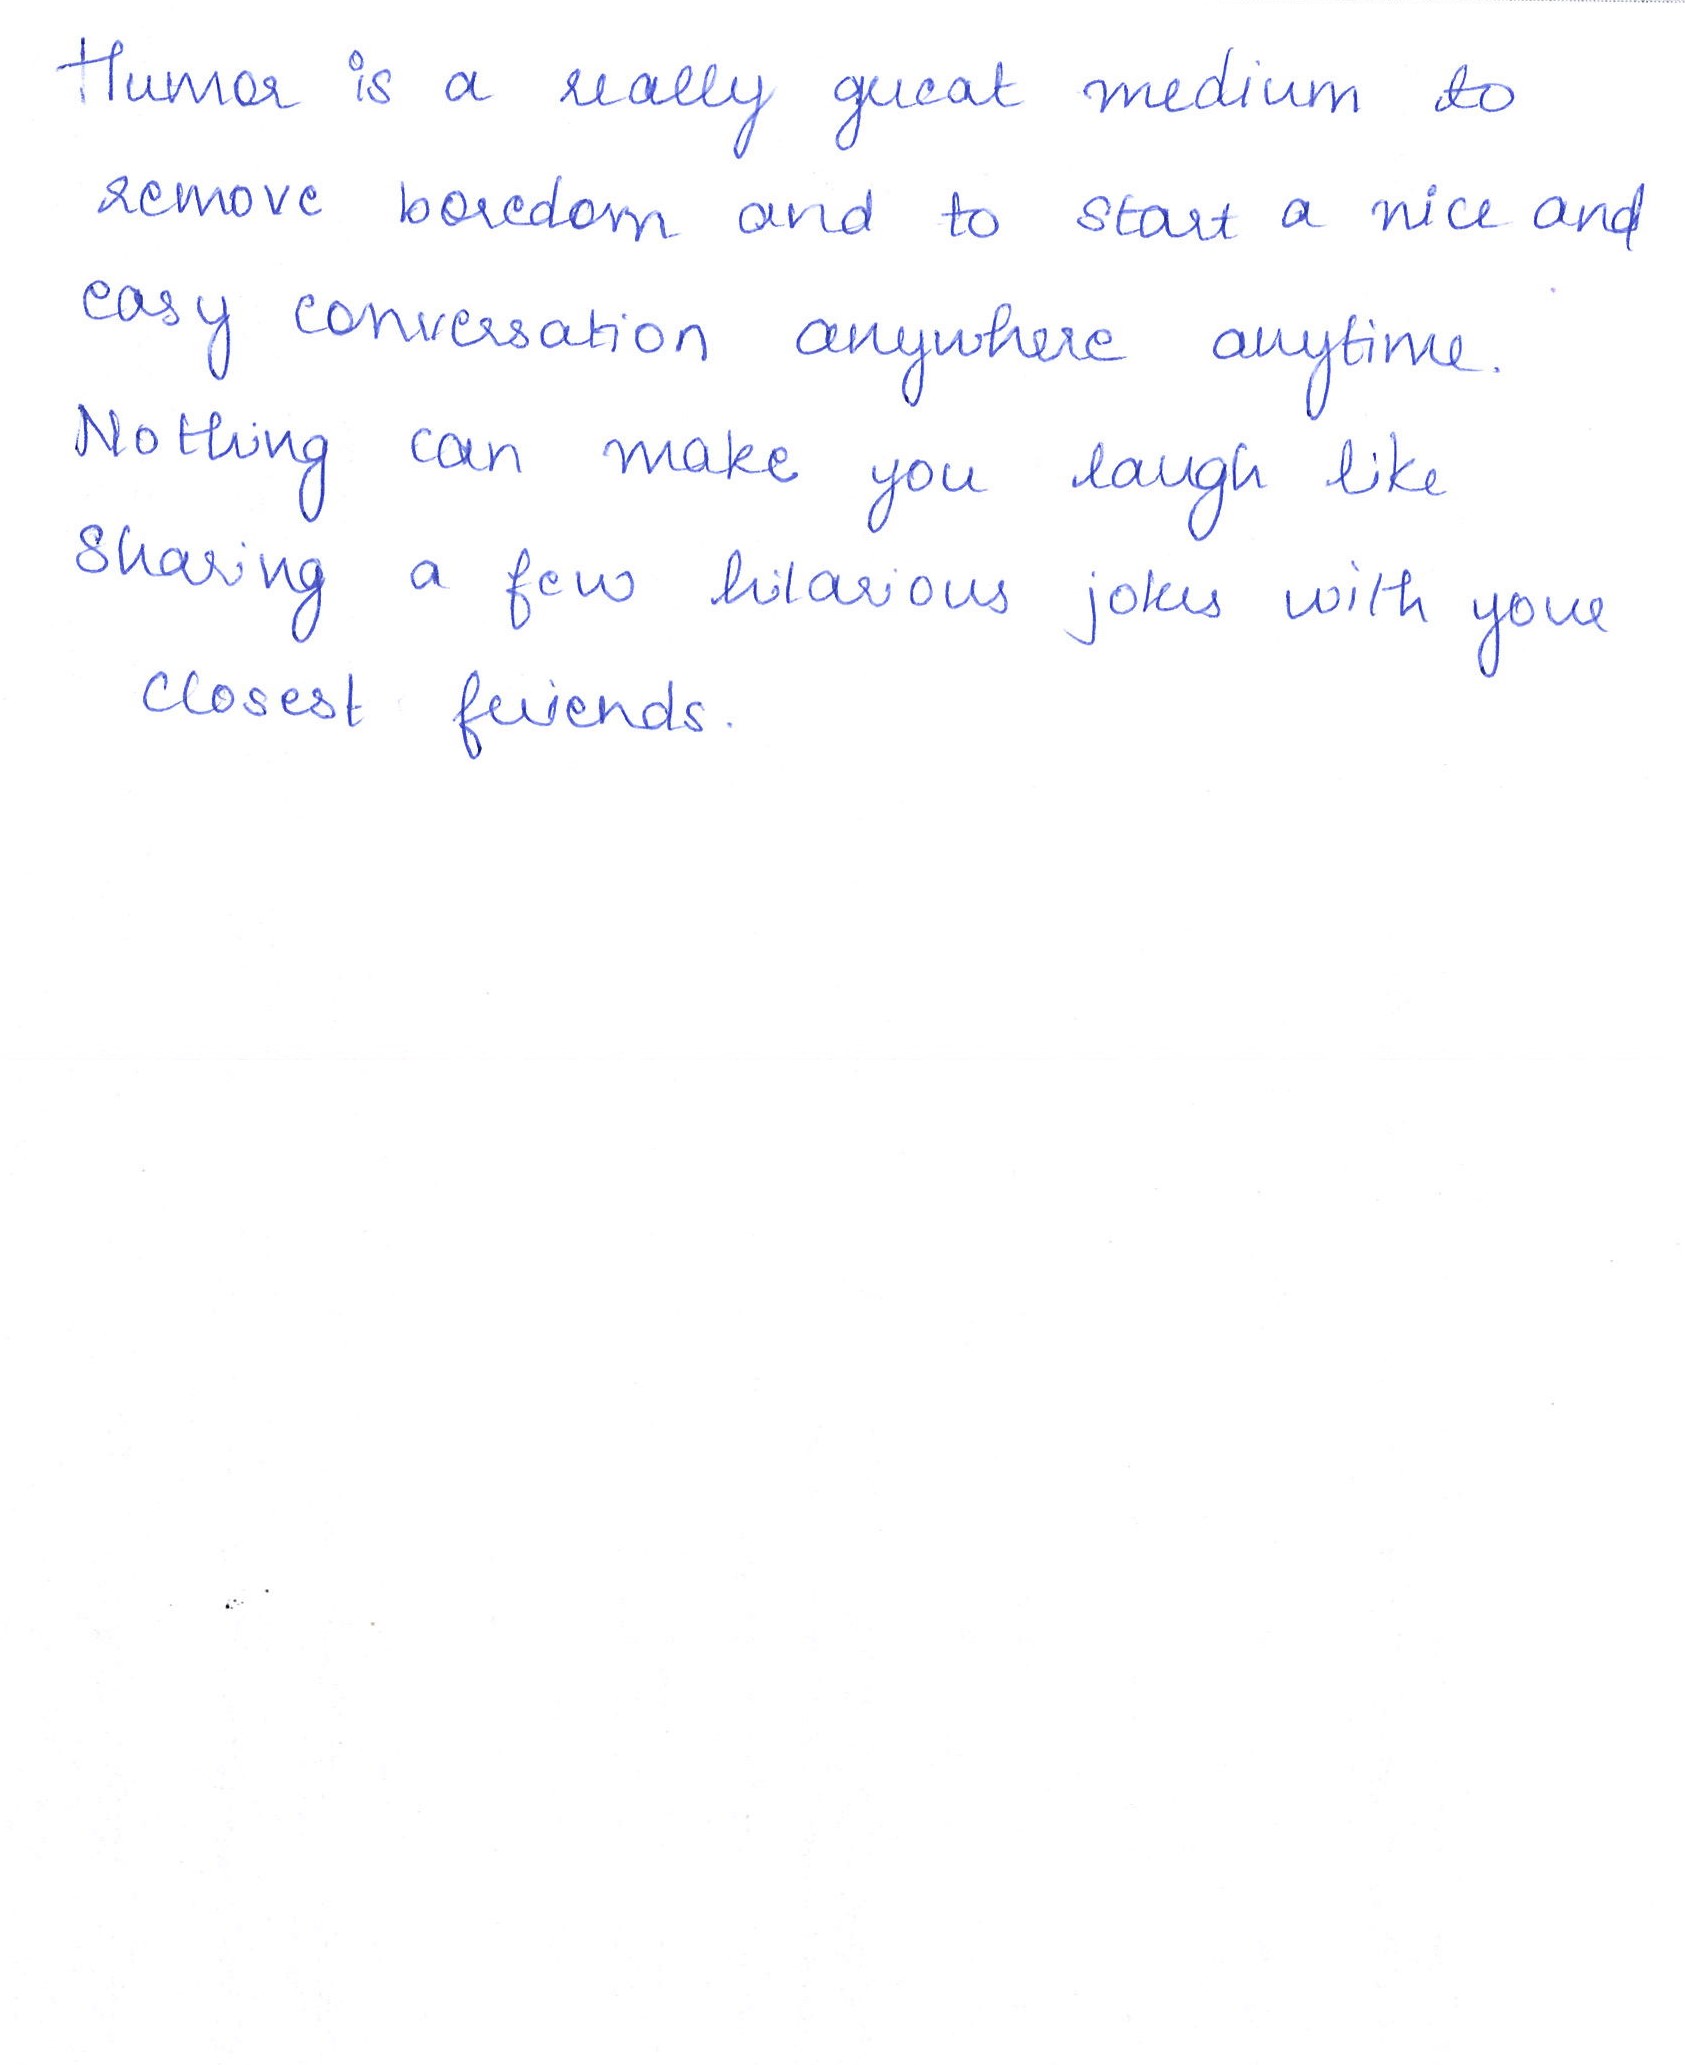 Humor is a really great medium to
remove boredom and to start a nice and
easy conversation anywhere anytime.
Nothing can make you laugh like
Sharing a few hilarious jokes with your
closest friends.